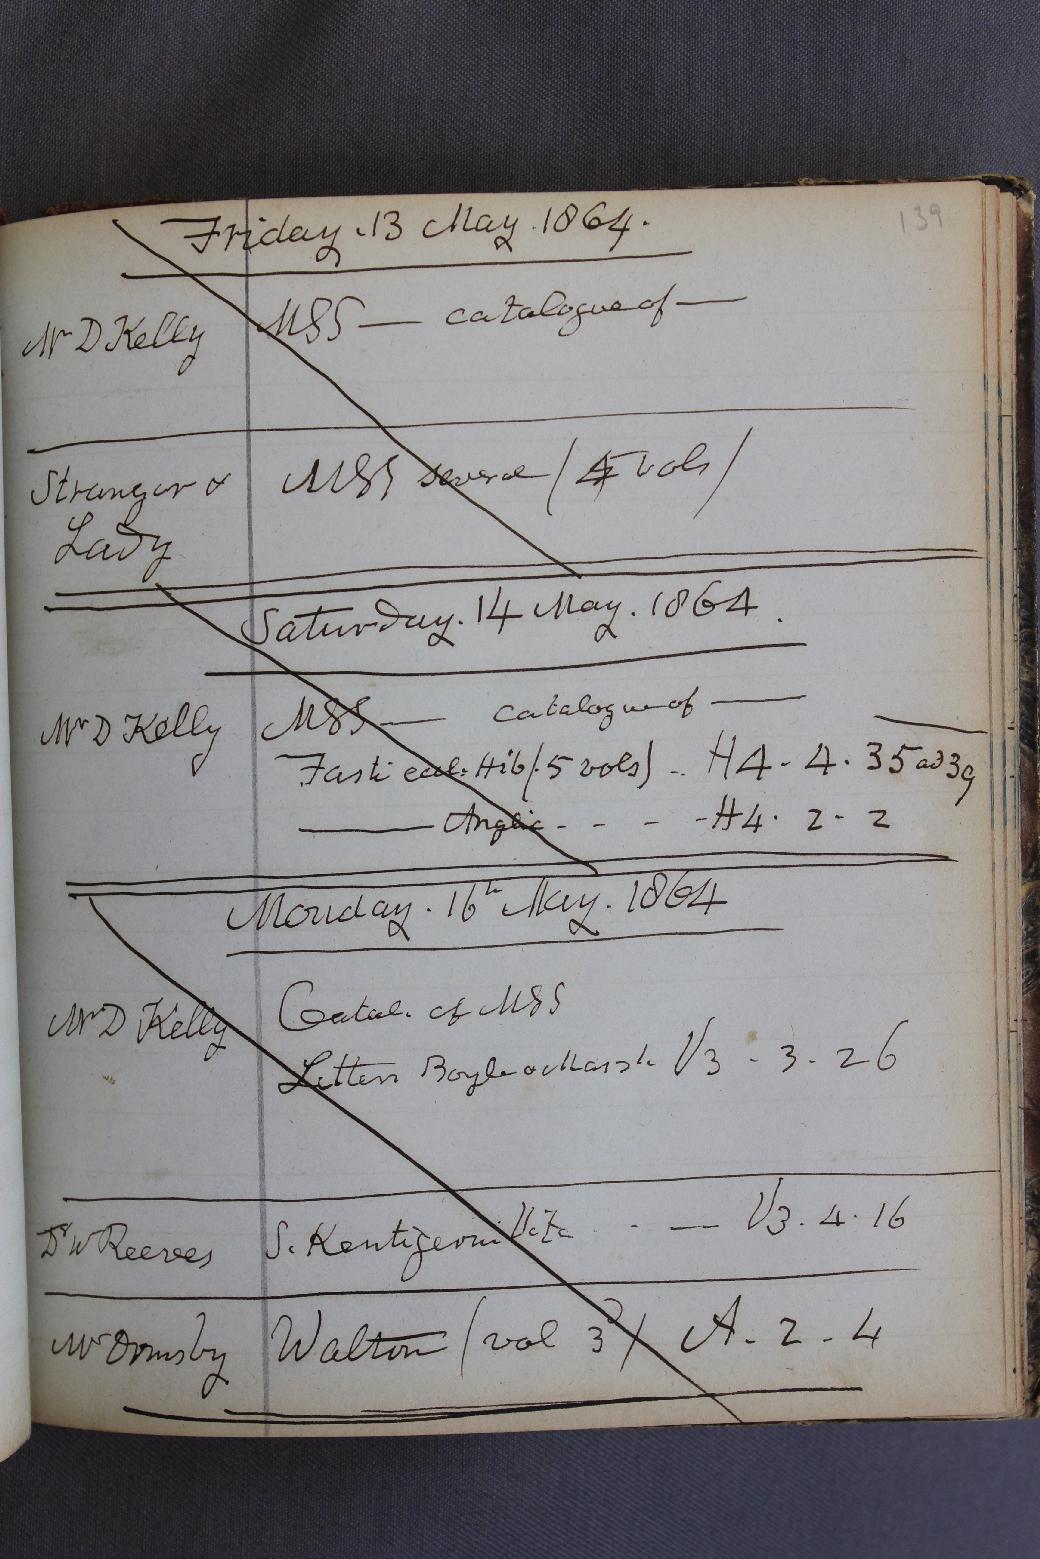 139
Friday. 13 May. 1864.
Mr D Kelly MSS — catalogue of —
Stranger & MSS several (4 vols)
Lady
Saturday. 14 May. 1864.
Mr D Kelly MSS — catalogue of —
Fasti eccl. Hib (5 vols) - H4. 4. 35 ad 39
—— Anglic - - - - H4. 2. 2
Monday. 16th May. 1864
Mr D Kelly Catal. of MSS
Letters Boyle & Marsh V3. 3. 26
Dr W Reeves S. Kentigerni Vita - - — V3. 4. 16
Mr Ormsby Walton (vol 3d) A. 2. 4